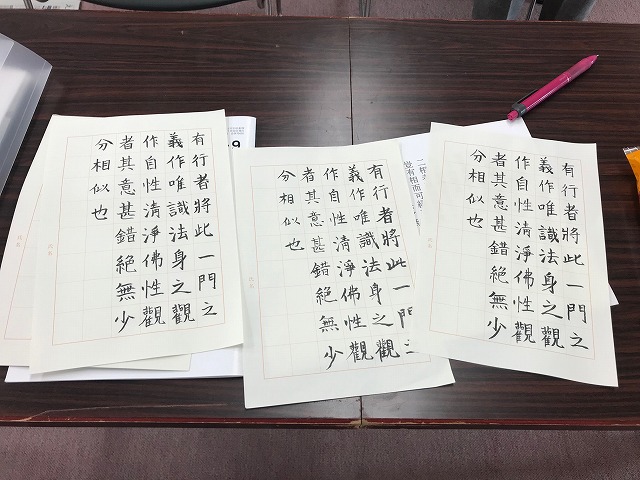 有行者將此一門之
義作唯識法身之觀
作自性清淨佛性觀
者其意甚錯絶無少
分相似也
氏名
有行者將此一門之
義作唯識法身之觀
作自性清淨佛性觀
者其意甚錯絶無少
分相似也
氏名
有行者將此一門之
義作唯識法身之觀
作自性清淨佛性觀
者其意甚錯絶無少
分相似也
氏名
9